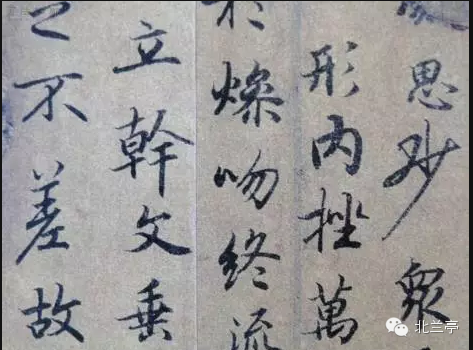 思眇衆
形内挫萬
於燥吻終流
立幹文垂
之不差故
北兰亭